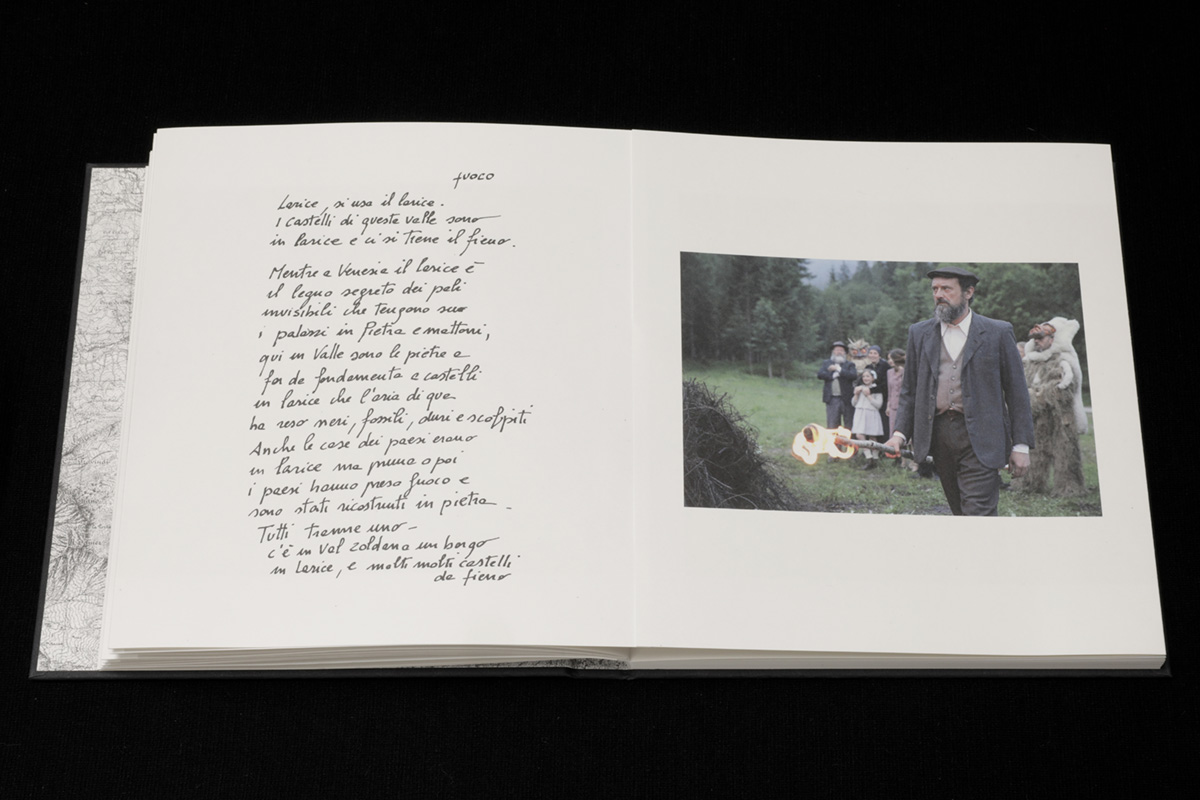 fuoco
Larice, si usa il larice.
I castelli di questa valle sono
in larice e ci si tiene il fieno.
Mentre a Venezia il larice è
il legno segreto dei pali
invisibili che tengono suo
i palazzi in Pietra e mattoni,
qui in Valle sono le pietre a
far da fondamenta a castelli
in larice che l'aria di qua
ha reso neri, fossili, duri e scolpiti
Anche le case dei paesi erano
in larice ma prima o poi
i paesi hanno preso fuoco e
sono stati ricostruiti in pietra.
Tutti tranne uno -
c'è in Val Zoldana un borgo
in Larice, e molti molti castelli
da fieno